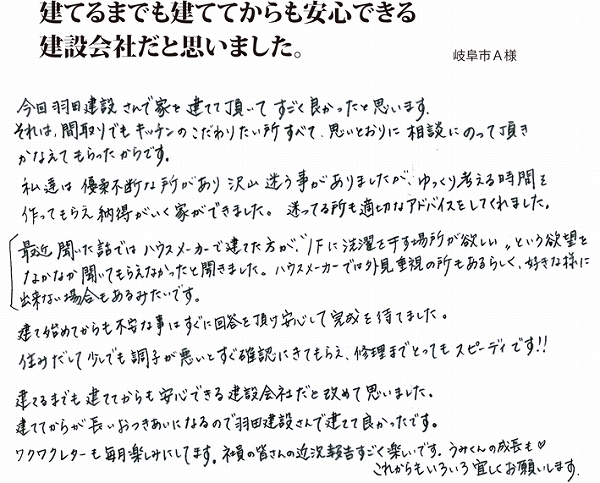 建てるまでも建ててからも安心できる
建設会社だと思いました。
岐阜市A様
今回羽田建設さんで家を建てて頂いてすごく良かったと思います。
それは、間取りでもキッチンのこだわりたい所すべて、思いどおりに相談にのって頂き
かなえてもらったからです。
私達は優柔不断な所があり沢山迷う事がありましたが、ゆっくり考える時間を
作ってもらえ納得がいく家ができました。迷ってる所も適切なアドバイスをしてくれました。
最近聞いた話ではハウスメーカーで建てた方が、"1Fに洗濯を干す場所が欲しい"という欲望を
なかなか聞いてもらえなかったと聞きました。ハウスメーカーでは外見重視の所もあるらしく、好きな様に
出来ない場合もあるみたいです。
建て始めてからも不安な事はすぐに回答を頂け安心して完成を待てました。
住みだして少しでも調子が悪いとすぐ確認にきてもらえ、修理までとってもスピーディです!!
建てるまでも建ててからも安心できる建設会社だと改めて思いました。
建ててからが長いおつきあいになるので羽田建設さんで建てて良かったです。
ワクワクレターも毎月楽しみにしてます。社員の皆さんの近況報告すごく楽しいです。うみくんの成長も♡
これからもいろいろ宜しくお願いします。